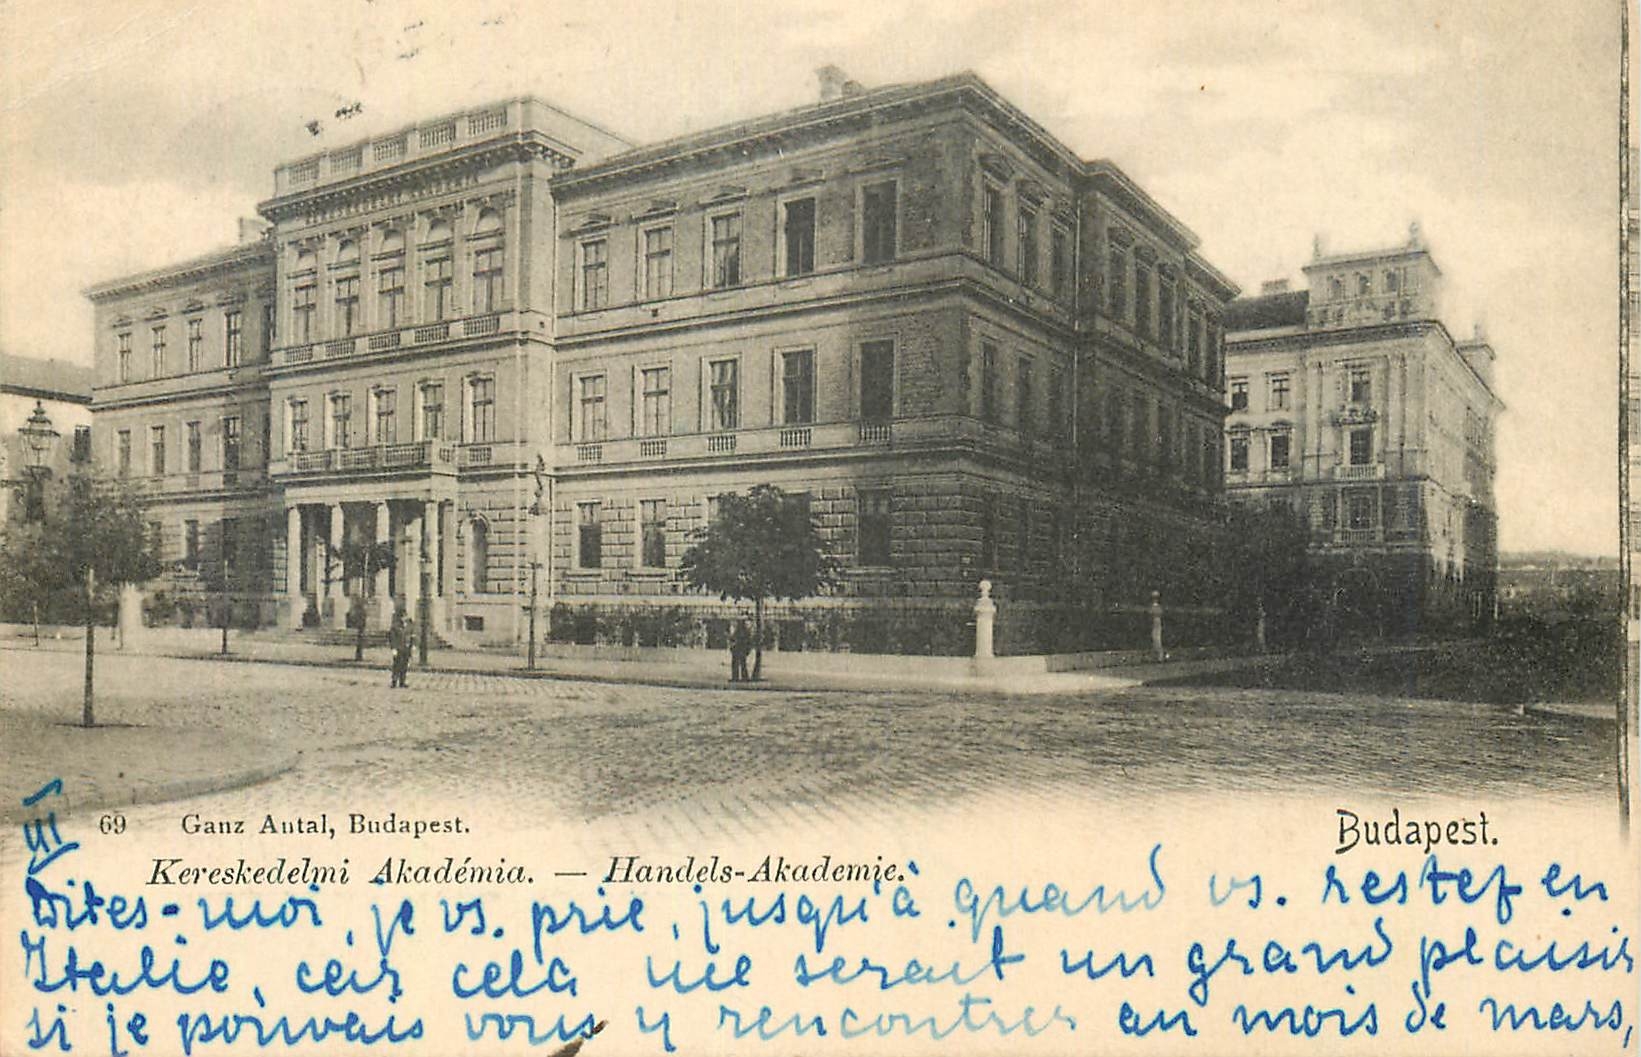 III
69 Ganz Antal, Budapest.
Budapest.
Kereskedelmi Akadémia. — Handels-Akademie.
Dites-moi, je vs. prie, jusqu'à quand vs. restez en
Italie, car cela me serait un grand plaisir
si je pouvais vous y rencontrer au mois de mars,